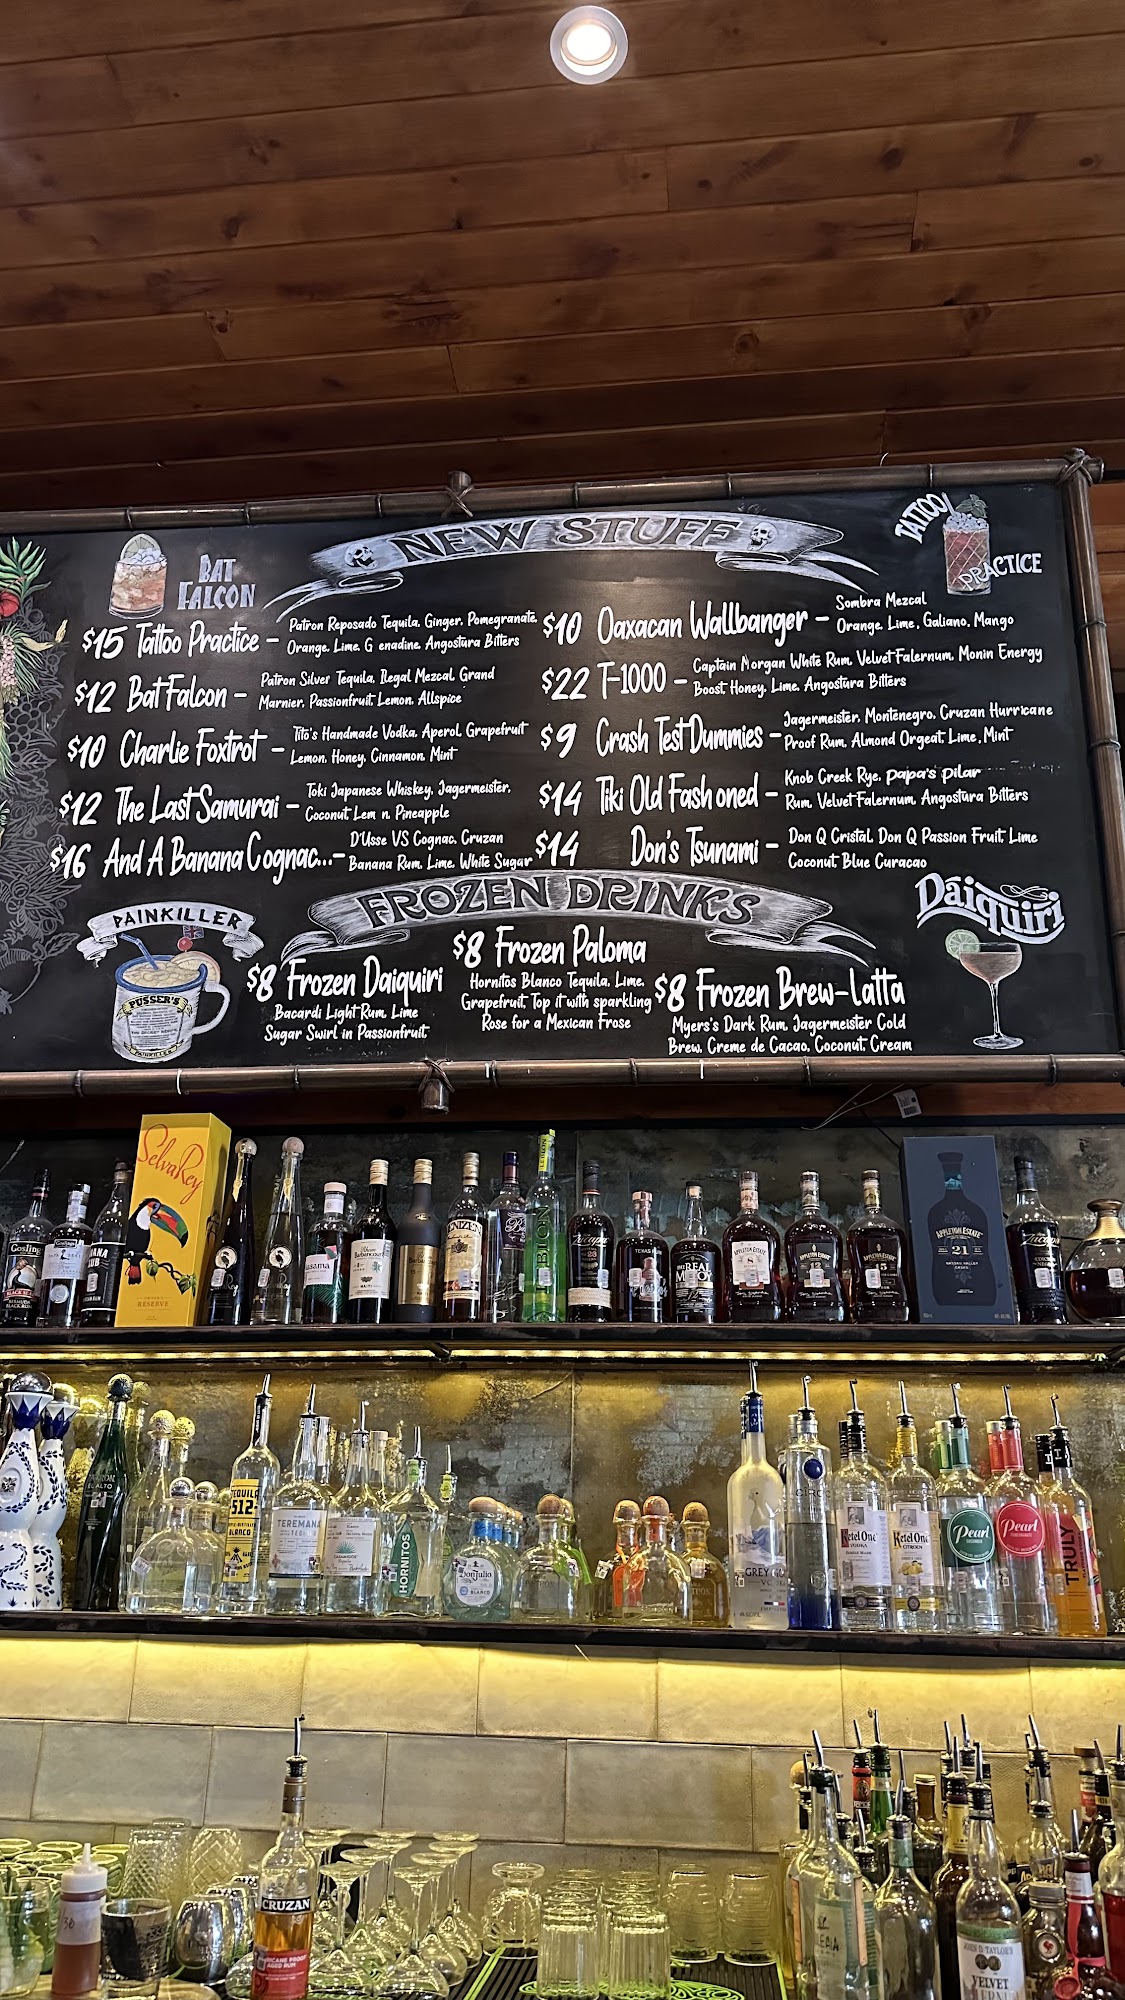 NEW STUFF
BAT
FALCON
TATTOO
PRACTICE
$15 Tattoo Practice - Patron Reposado Tequila, Ginger, Pomegranate,
Orange, Lime, G enadine, Angostura Bitters
$12 Bat Falcon - Patron Silver Tequila, Ilegal Mezcal, Grand
Marnier, Passionfruit, Lemon, Allspice
$10 Charlie Foxtrot - Tito's Handmade Vodka, Aperol, Grapefruit
Lemon, Honey, Cinnamon, Mint
$12 The Last Samurai - Toki Japanese Whiskey, Jagermeister,
Coconut, Lem n, Pineapple
$16 And A Banana Cognac...- D'Usse VS Cognac, Cruzan
Banana Rum, Lime, White Sugar
$10 Oaxacan Wallbanger - Sombra Mezcal
Orange, Lime, Galiano, Mango
$22 T-1000 - Captain Morgan White Rum, Velvet Falernum, Monin Energy
Boost, Honey, Lime, Angostura Bitters
$9 Crash Test Dummies - Jagermeister, Montenegro, Cruzan Hurricane
Proof Rum, Almond Orgeat, Lime, Mint
$14 Tiki Old Fash oned - Knob Creek Rye, Papa's Pilar
Rum, Velvet Falernum, Angostura Bitters
$14 Don's Tsunami - Don Q Cristal, Don Q Passion Fruit, Lime
Coconut, Blue Curacao
FROZEN DRINKS
PAINKILLER
PUSSER'S
PAINKILLER
Daiquiri
$8 Frozen Daiquiri
Bacardi Light Rum, Lime
Sugar Swirl in Passionfruit
$8 Frozen Paloma
Hornitos Blanco Tequila, Lime,
Grapefruit, Top it with sparkling
Rose for a Mexican Frose
$8 Frozen Brew-latta
Myers's Dark Rum, Jagermeister Cold
Brew, Creme de Cacao, Coconut, Cream
SelvaRey
RESERVE
Gosling
Barbancourt
Zacapa
23
TEXAS
THE REAL
APPLETON ESTATE
8
APPLETON ESTATE
12
APPLETON ESTATE
15
APPLETON ESTATE
21
Zacapa
PATRON
EL ALTO
TEQUILA
512
BLANCO
TEREMANA
TEQUILA
HORNITOS
Don Julio
BLANCO
GREY
CIROC
Ketel One
VODKA
Ketel One
CITROEN
Pearl
Pearl
TRULY
CRUZAN
JOHN D. TAYLOR'S
VELVET